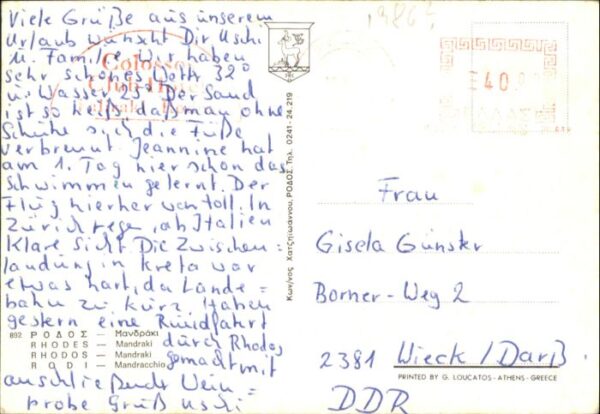 Viele Grüße aus unserem
Urlaub wünscht Dir Uschi
u. Familie. Wir haben
sehr schönes Wettr 32°
u. Wasser 25° Der Sand
ist so heiß daßman ohne
Schuhe sich die Füße
verbrennt. Jeannine hat
am 1. Tag hier schon das
Schwimmen gelernt. Der
Flug hierher war toll. In
Zürich regen, ab Italien
Klare Sicht Die Zwischen=
landung in Kreta war
etwas hart, da Lande=
bahn zu kurz. Haben
gestern eine Rundfahrt
durch Rhodos
gemacht mit
anschließender Wein=
probe Gruß Uschi
Colossos
892 ΡΟΔΟΣ — Μανδράκι
RHODES — Mandraki
RHODOS — Mandraki
RODI — Mandracchio
Κων/νος Χατζηιωάννου, ΡΟΔΟΣ, Τηλ. 0241-24.219
1986?
40
ΕΛΛΑΣ
Frau
Gisela Günster
Borner-Weg 2
2381 Wieck/Darß
PRINTED BY G. LOUCATOS - ATHENS - GREECE
DDR